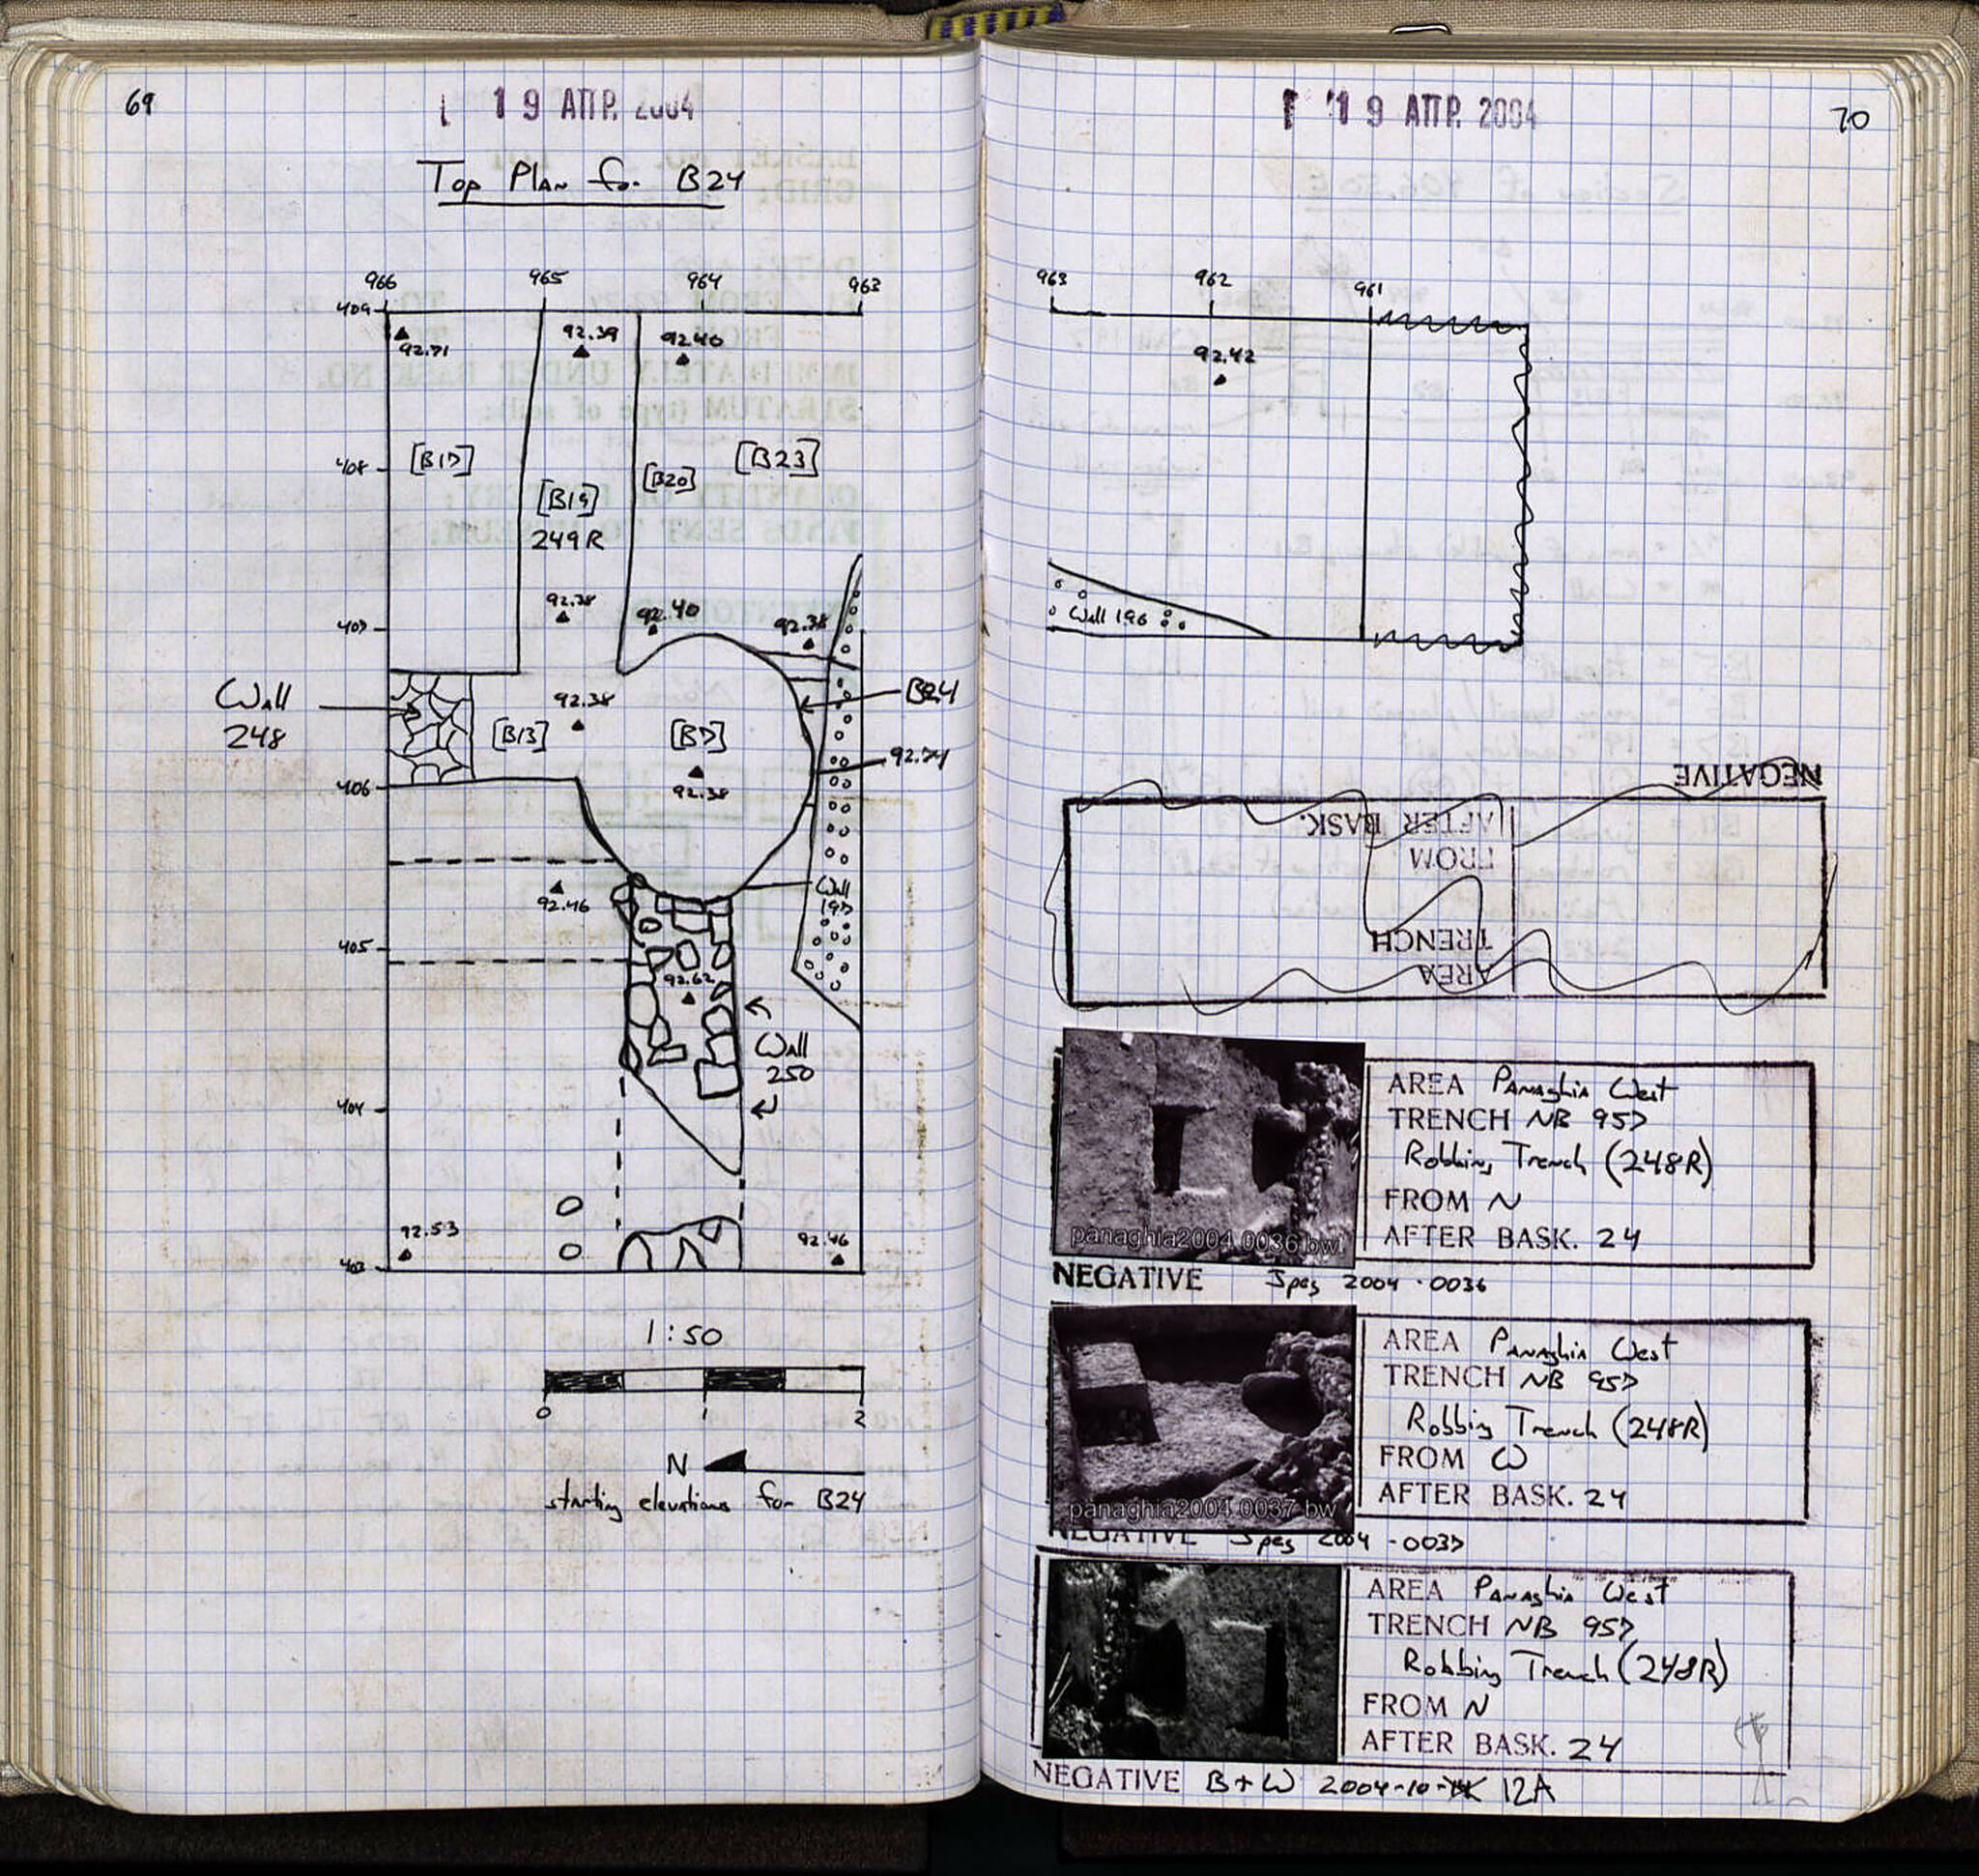 69
19 ΑΠΡ. 2004
Top Plan for B24
966 965 964 963
409
92.71
92.39
92.40
408
[B17]
[B19]
249R
[B20]
[B23]
407
92.38
92.40
92.38
Wall
248
92.38
[B13]
[B7]
92.38
B24
92.74
406
92.46
Wall
197
405
92.62
Wall
250
404
92.53
92.46
403
1:50
0 1 2
N
starting elevations for B24
19 ΑΠΡ. 2004
70
963 962 961
92.42
Wall 196
NEGATIVE
AFTER BASK.
FROM
TRENCH
AREA
panaghia2004 0036 bw
AREA Panaghia West
TRENCH NB 957
Robbing Trench (248R)
FROM N
AFTER BASK. 24
NEGATIVE Jpeg 2004-0036
panaghia2004 0037 bw
AREA Panaghia West
TRENCH NB 957
Robbing Trench (248R)
FROM W
AFTER BASK. 24
NEGATIVE Jpeg 2004-0037
AREA Panaghia West
TRENCH NB 957
Robbing Trench (248R)
FROM N
AFTER BASK. 24
NEGATIVE B+W 2004-10- 12A